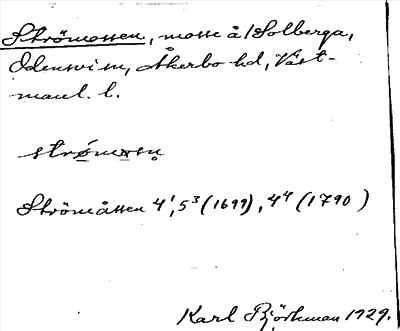 Strömossen, mosse å Solberga,
Odensvi sn, Åkerbo hd, Väst-
manl. l.
strö̀mosn̥
Strömåssen 4¹, 5³ (1699), 4⁴ (1790)
Karl Björkman 1929.